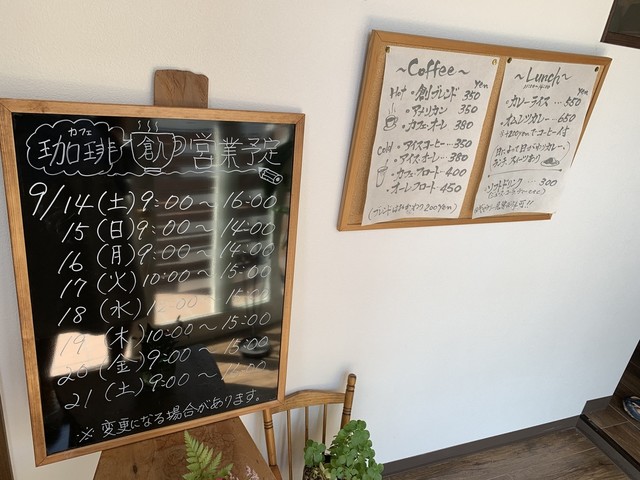 カフェ
珈琲 創の営業予定
9/14(土)9:00～16:00
15(日)9:00～14:00
16(月)9:00～14:00
17(火)10:00～15:00
18(水)
19(木)10:00～15:00
20(金)9:00～15:00
21(土)9:00～
※変更になる場合があります。
～Coffee～
yen
Hot・創ブレンド 350
・アメリカン 350
・カフェ・オーレ 380
cold・アイスコーヒー… 350
・アイスオーレ… 380
・カフェフロート… 400
・オーレフロート… 450
(ブレンドはおかわり200yen)
～Lunch～
yen
・カレーライス… 550
・オムレツカレー… 650
・ソフトドリンク… 300